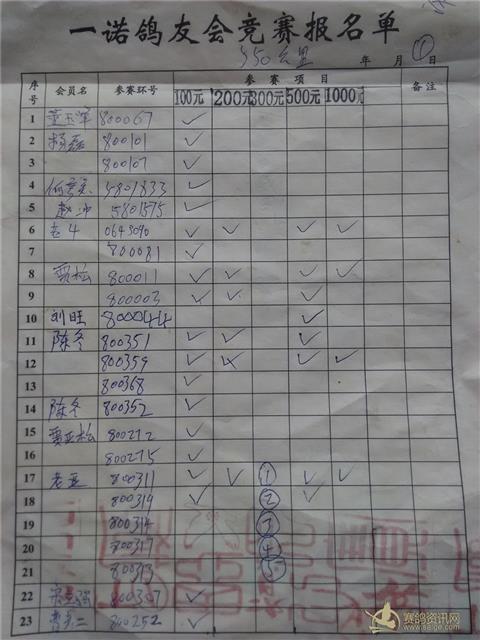 一诺鸽友会竞赛报名单
550公里 年 月 ①
序号 会员名 参赛环号 参赛项目 备注
100元 200元 300元 500元 1000元
1 800067 ✓
2 杨磊 800101 ✓
3 800107 ✓
4 5801833 ✓
5 赵冲 5801575 ✓
6 老牛 0643090 ✓ ✓ ✓ ✓
7 800081 ✓
8 贾松 800011 ✓ ✓ ✓ ✓
9 800003 ✓ ✓ ✓
10 刘旺 800044 ✓
11 陈冬 800351 ✓ ✓ ✓
12 800359 ✓ ✓ ✓ ✓
13 800368 ✓
14 陈冬 800352 ✓
15 贾亚松 800272 ✓
16 800275 ✓
17 老五 800311 ✓ ✓ ① ✓ ✓
18 800319 ✓ ② ✓
19 800314 ③
20 800317 ④
21 800313 ⑤
22 800307 ✓
23 800252 ✓
赛鸽资讯网
www.saige.com